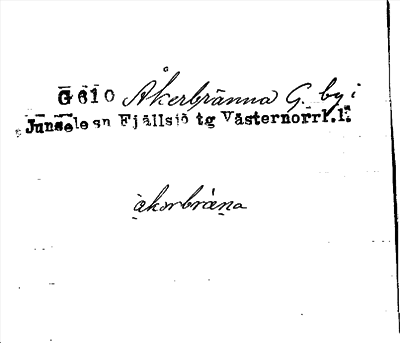 G 610 Åkerbränna G. by i
Junsele sn Fjällsjö tg Västernorrl.l.
åkorbräna